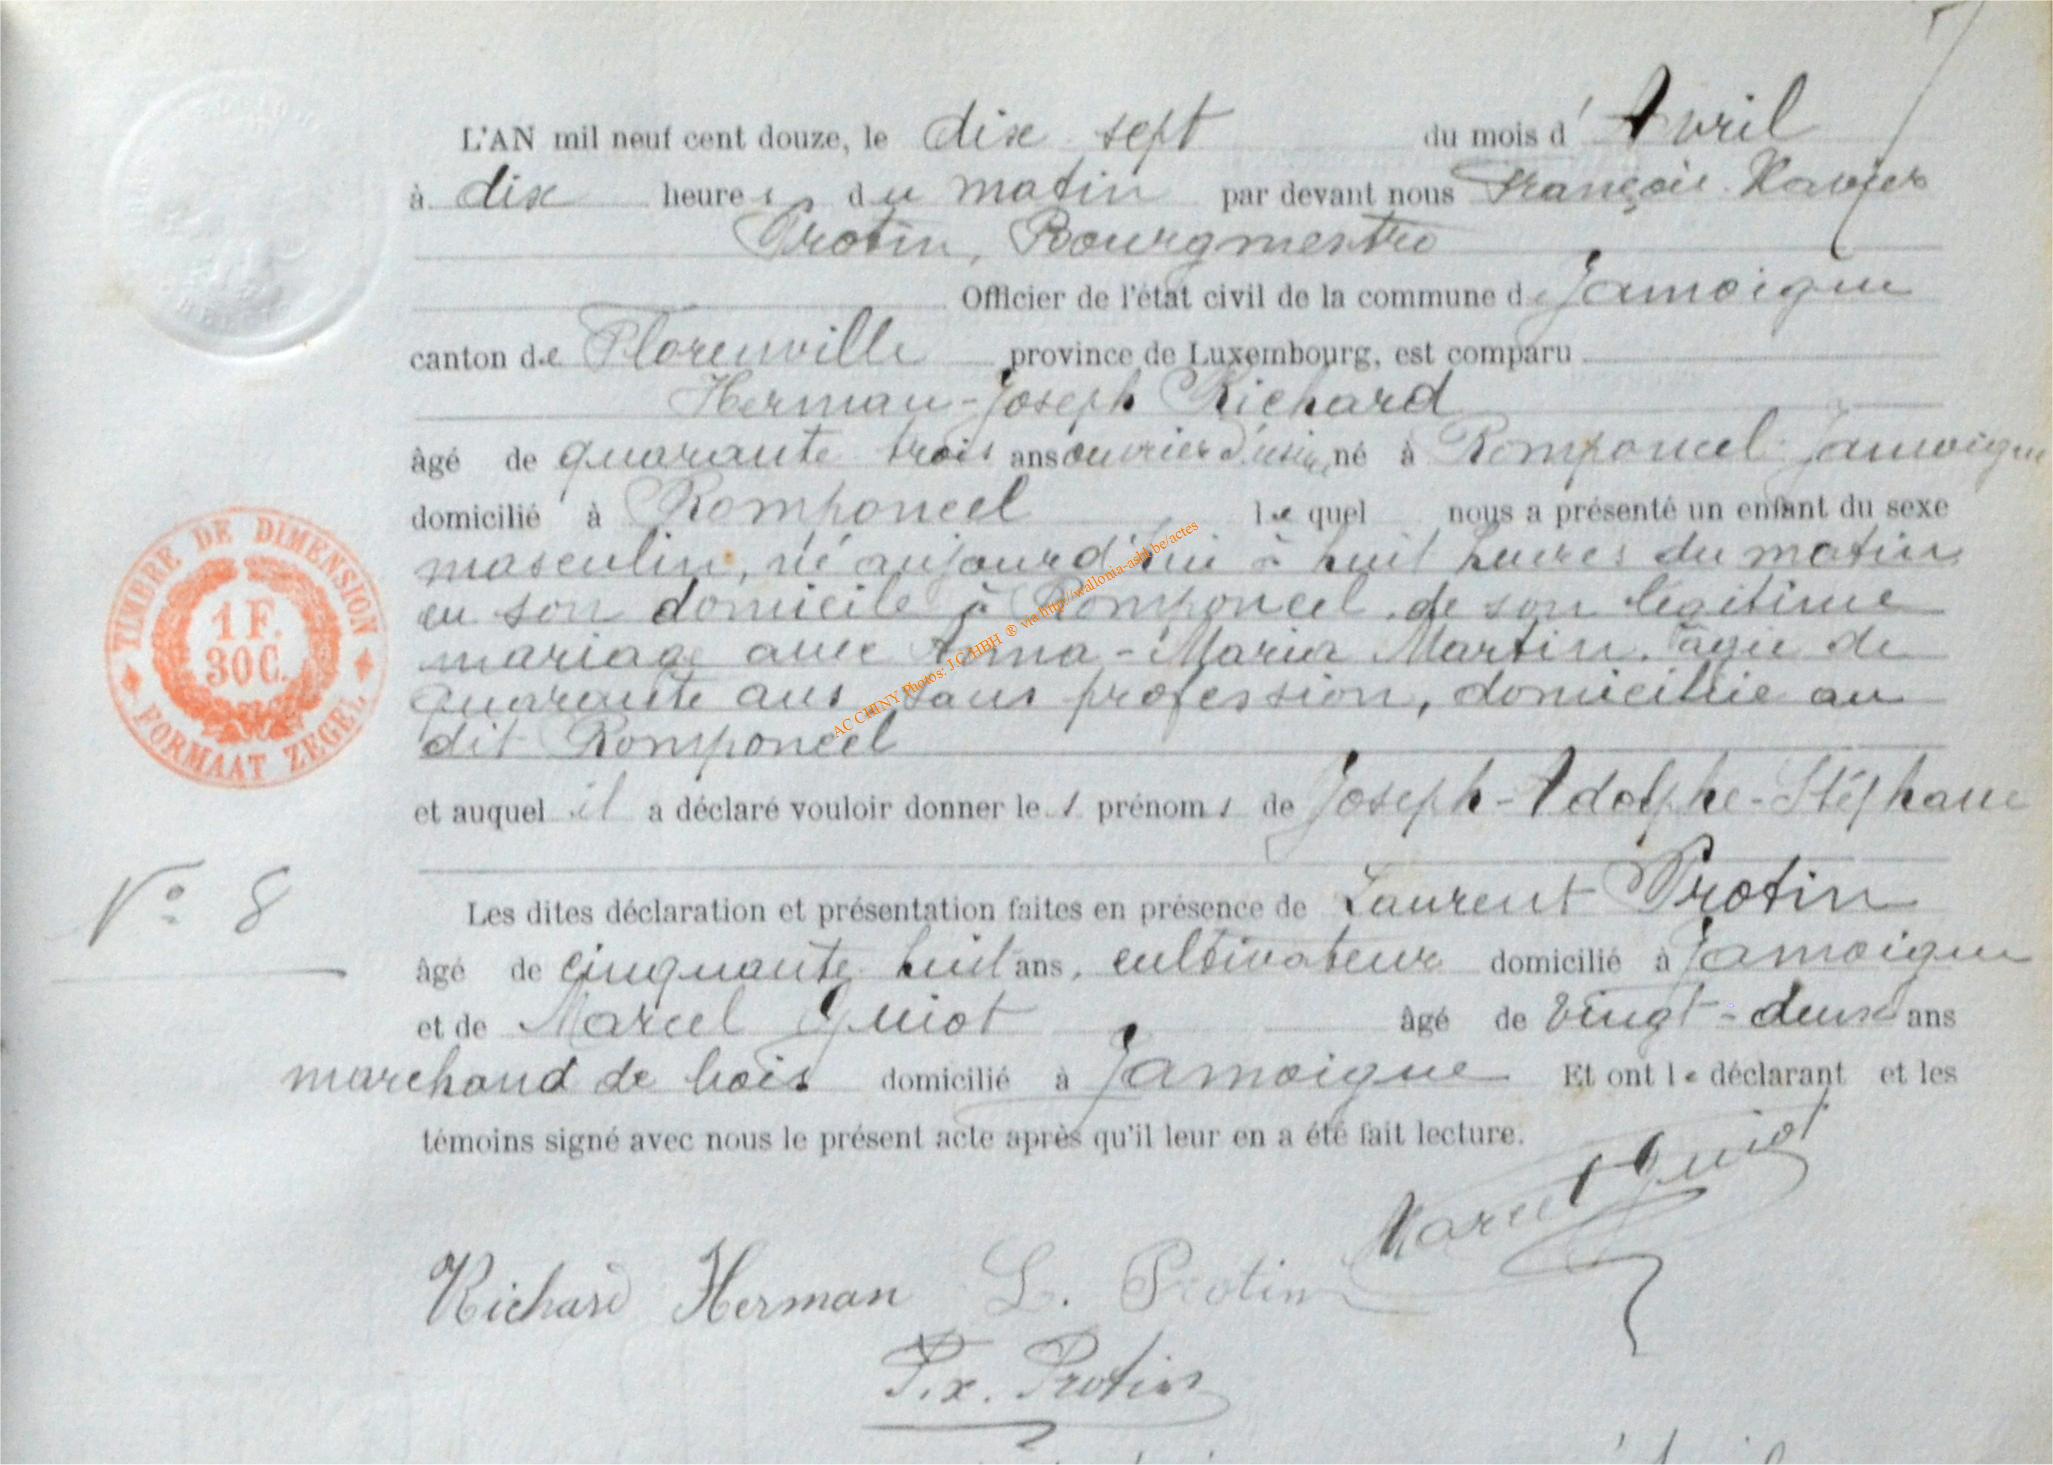 L'AN mil neuf cent douze, le dix sept du mois d'Avril
à dix heures du matin par devant nous François Xavier
Protin, Bourgmestre
Officier de l'état civil de la commune de Jamoigne
canton de Florenville province de Luxembourg, est comparu
Herman-Joseph Richard
âgé de quarante trois ans ouvrier d'usine, né à Romponcel Jamoigne
domicilié à Romponcel lequel nous a présenté un enfant du sexe
masculin, né aujourd'hui à huit heures du matin
en son domicile à Romponcel, de son légitime
mariage avec Anna-Maria Martin, âgée de
quarante ans, sans profession, domiciliée au
dit Romponcel
et auquel il a déclaré vouloir donner les prénoms de Joseph-Adolphe-Stéphane
TIMBRE DE DIMENSION
1 F.
30 C.
FORMAAT ZEGEL
AC CHINY Photos: J.C.HBH ® via http://wallonia-asbl.be/actes
N° 8
Les dites déclaration et présentation faites en présence de Laurent Protin
âgé de cinquante huit ans, cultivateur domicilié à Jamoigne
et de Marcel Guiot âgé de vingt-deux ans
marchand de bois domicilié à Jamoigne Et ont le déclarant et les
témoins signé avec nous le présent acte après qu'il leur en a été fait lecture.
Marcel Guiot
Richard Herman L. Protin
F.x. Protin